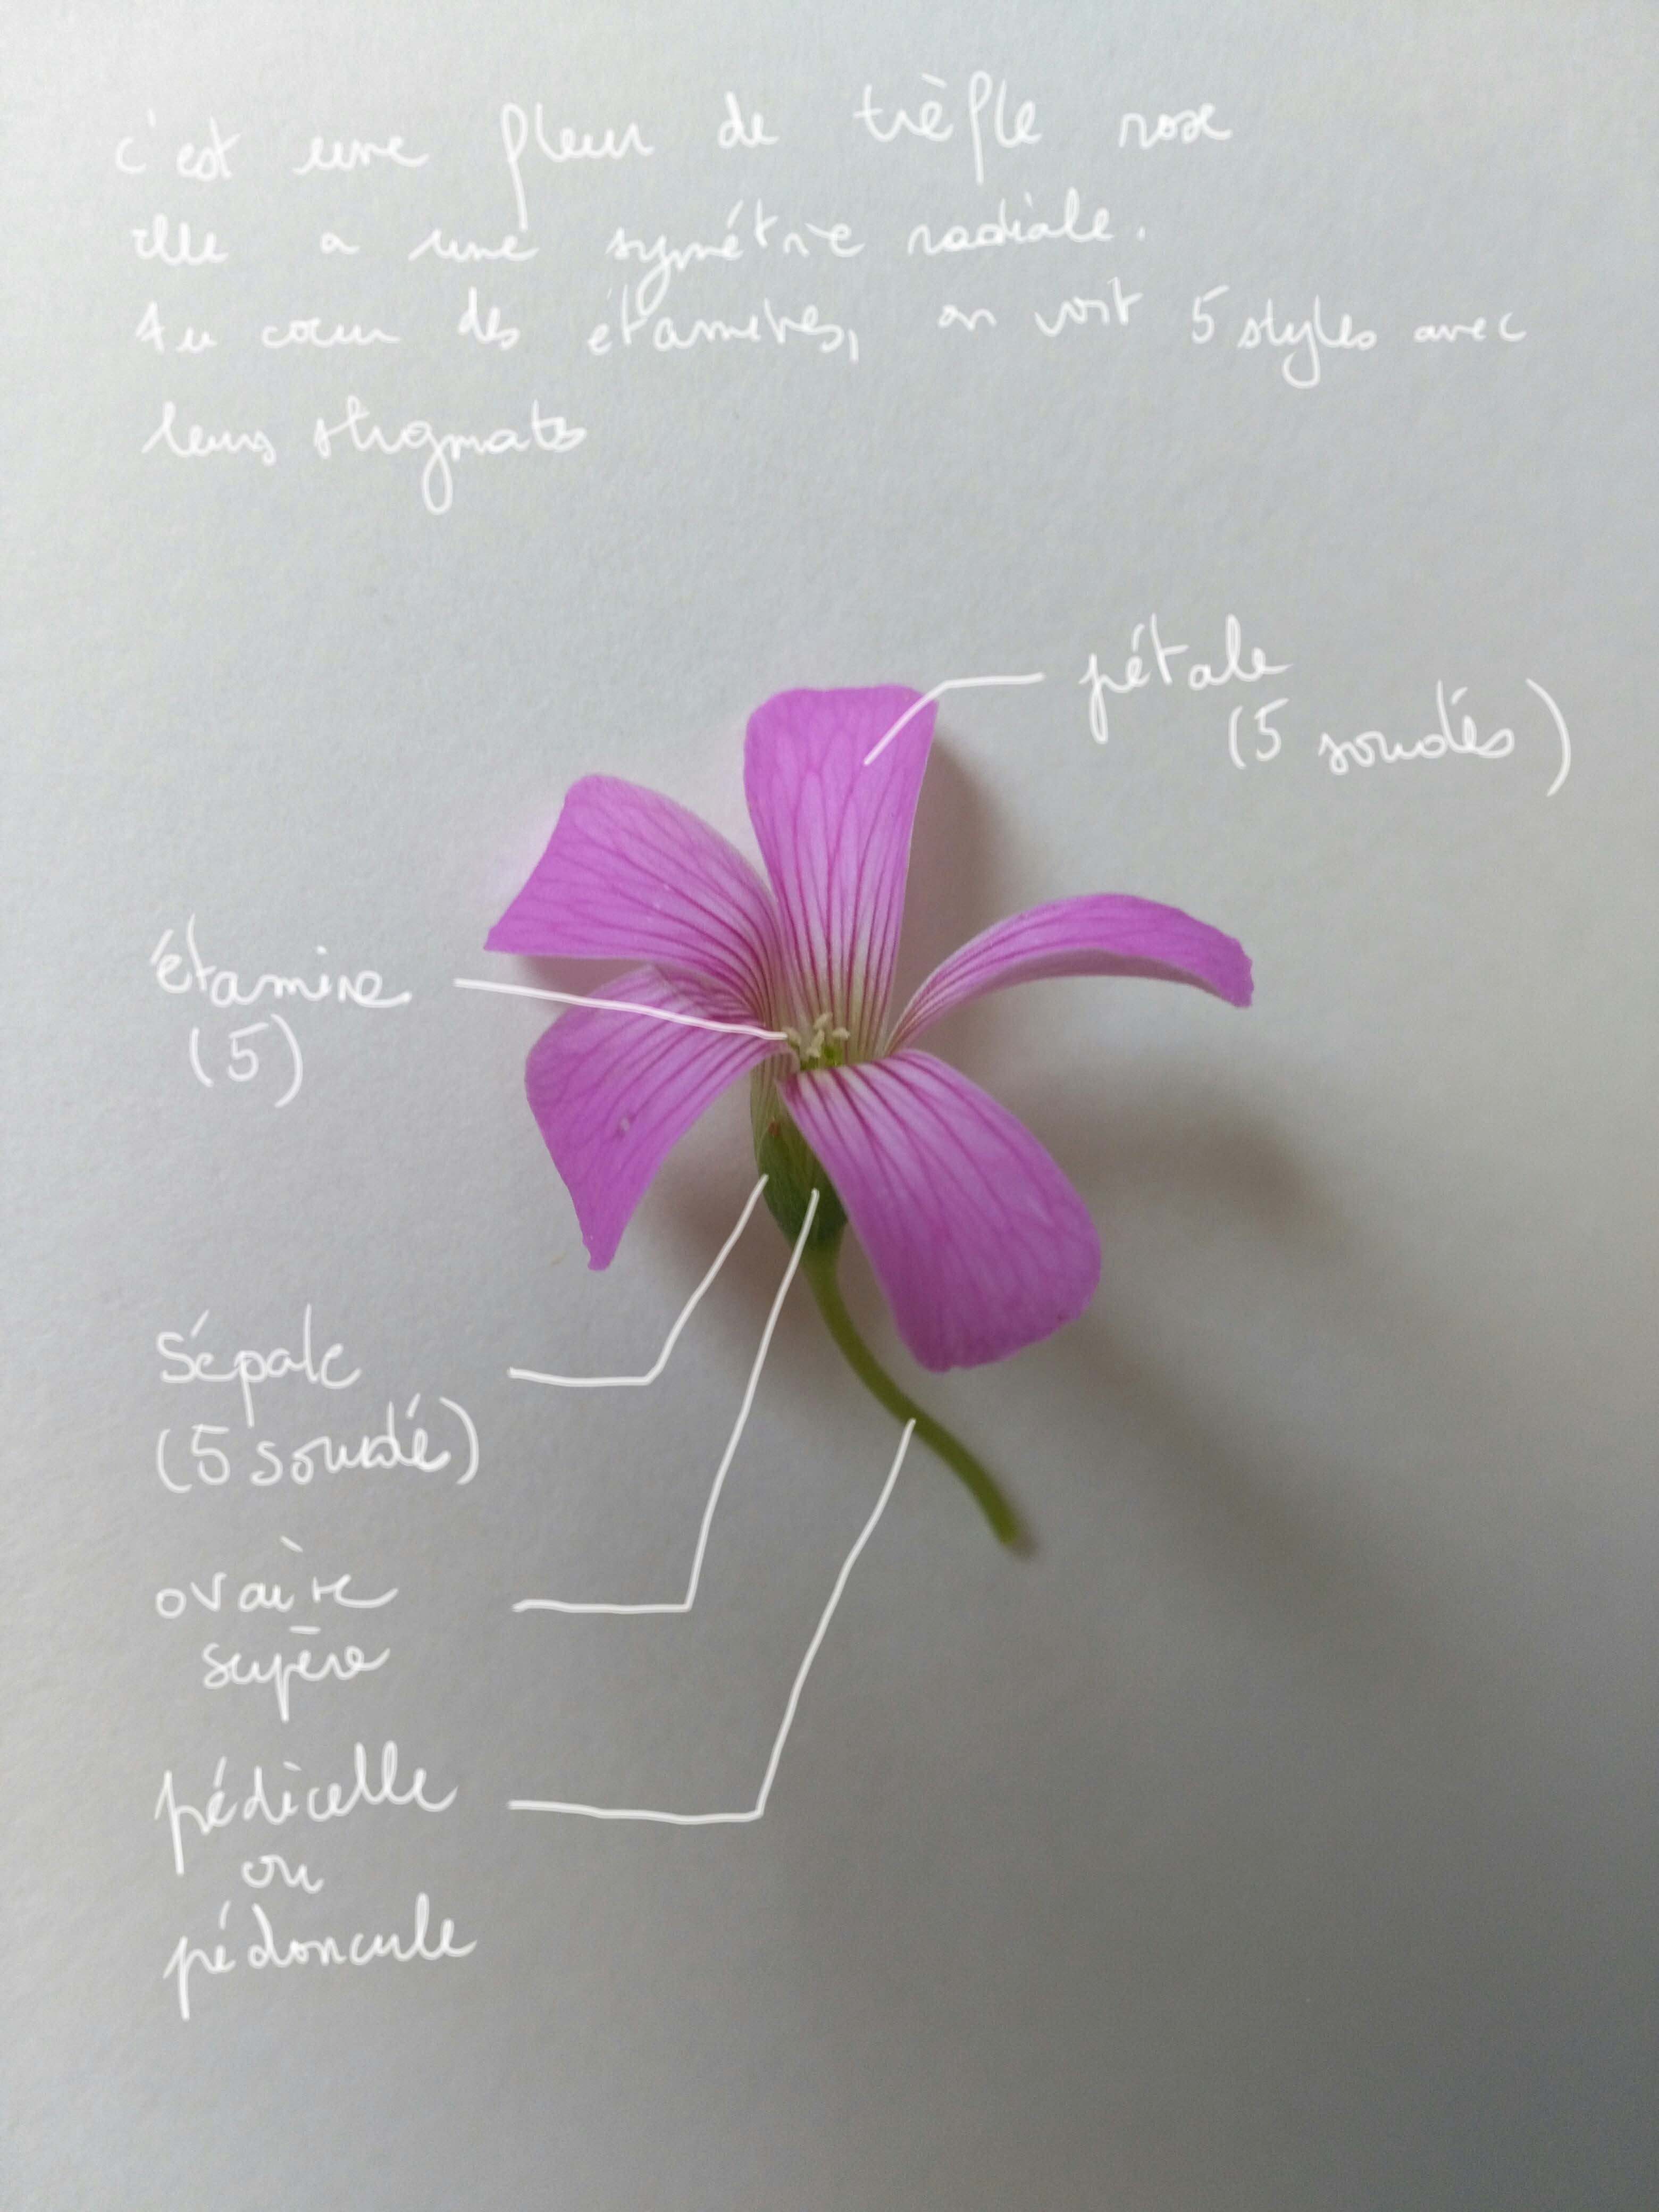 c'est une fleur de trèfle rose
elle a une symétrie radiale.
Au cœur des étamines, on voit 5 styles avec
leurs stigmates
pétale
(5 soudés)
étamine
(5)
Sépale
(5 soudé)
ovaire
supère
pédicelle
ou
pédoncule